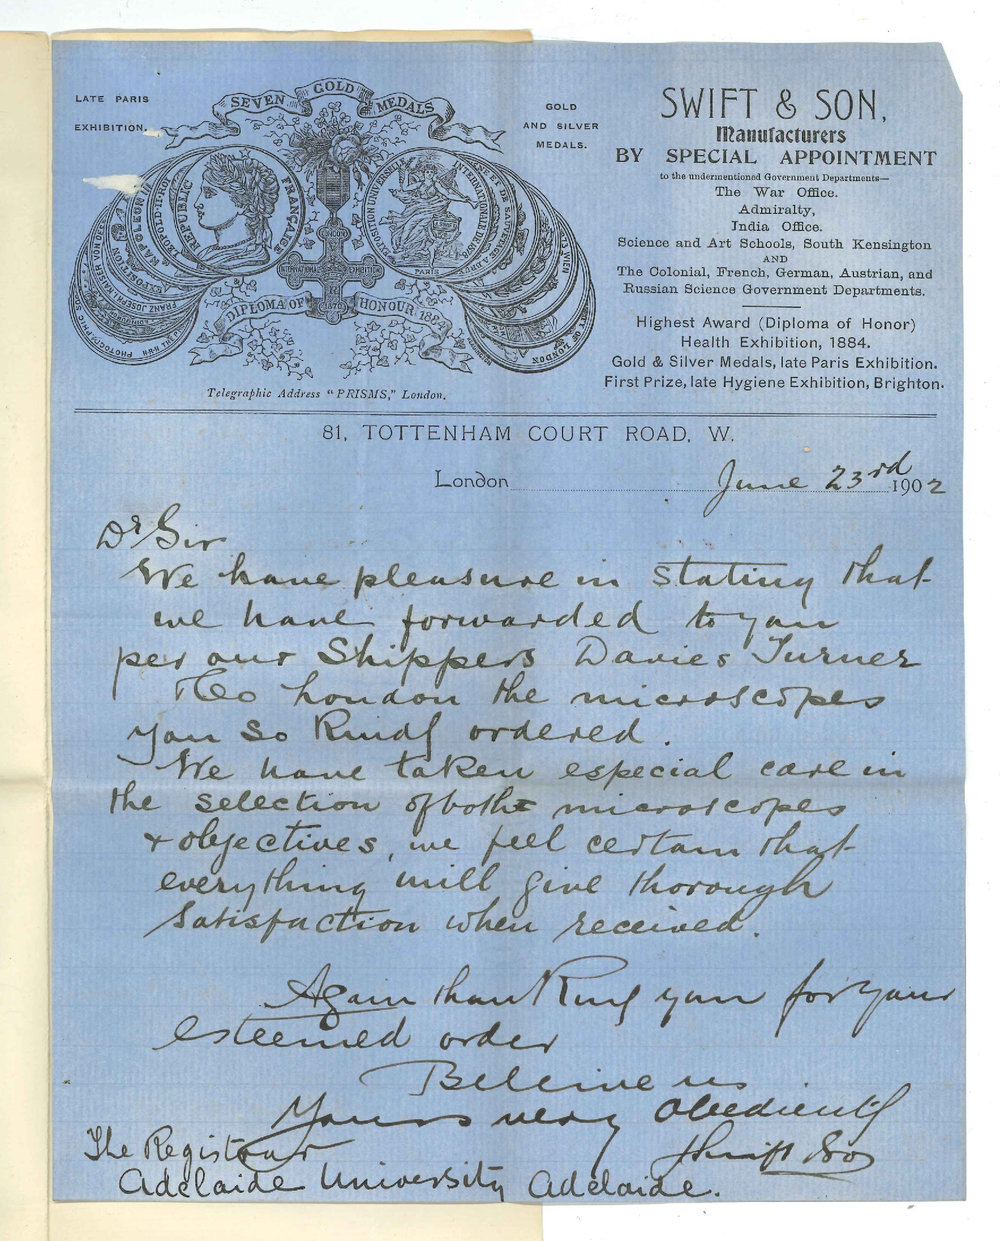 LATE PARIS
EXHIBITION.
SEVEN GOLD MEDALS
GOLD
AND SILVER
MEDALS.
REPUBLIC FRANCAISE
EXPOSITION UNIVERSELLE INTERNATIONALE DE 1878
PARIS
INTERNATIONAL EXHIBITION
DIPLOMA OF HONOUR 1884
Telegraphic Address "PRISMS," London.
SWIFT & SON,
Manufacturers
BY SPECIAL APPOINTMENT
to the undermentioned Government Departments—
The War Office.
Admiralty,
India Office.
Science and Art Schools, South Kensington
AND
The Colonial, French, German, Austrian, and
Russian Science Government Departments.
Highest Award (Diploma of Honor)
Health Exhibition, 1884.
Gold & Silver Medals, late Paris Exhibition.
First Prize, late Hygiene Exhibition, Brighton.
81, TOTTENHAM COURT ROAD, W.
London June 23rd 1902
Dr Sir
We have pleasure in stating that
we have forwarded to you
per our Shippers Davies Turner
& Co London the microscopes
you so kindly ordered.
We have taken especial care in
the selection of both microscopes
& objectives, we feel certain that
everything will give thorough
satisfaction when received.
Again thanking you for your
esteemed order
Believe us
Yours very obediently
Swift & Son
The Registrar
Adelaide University Adelaide.